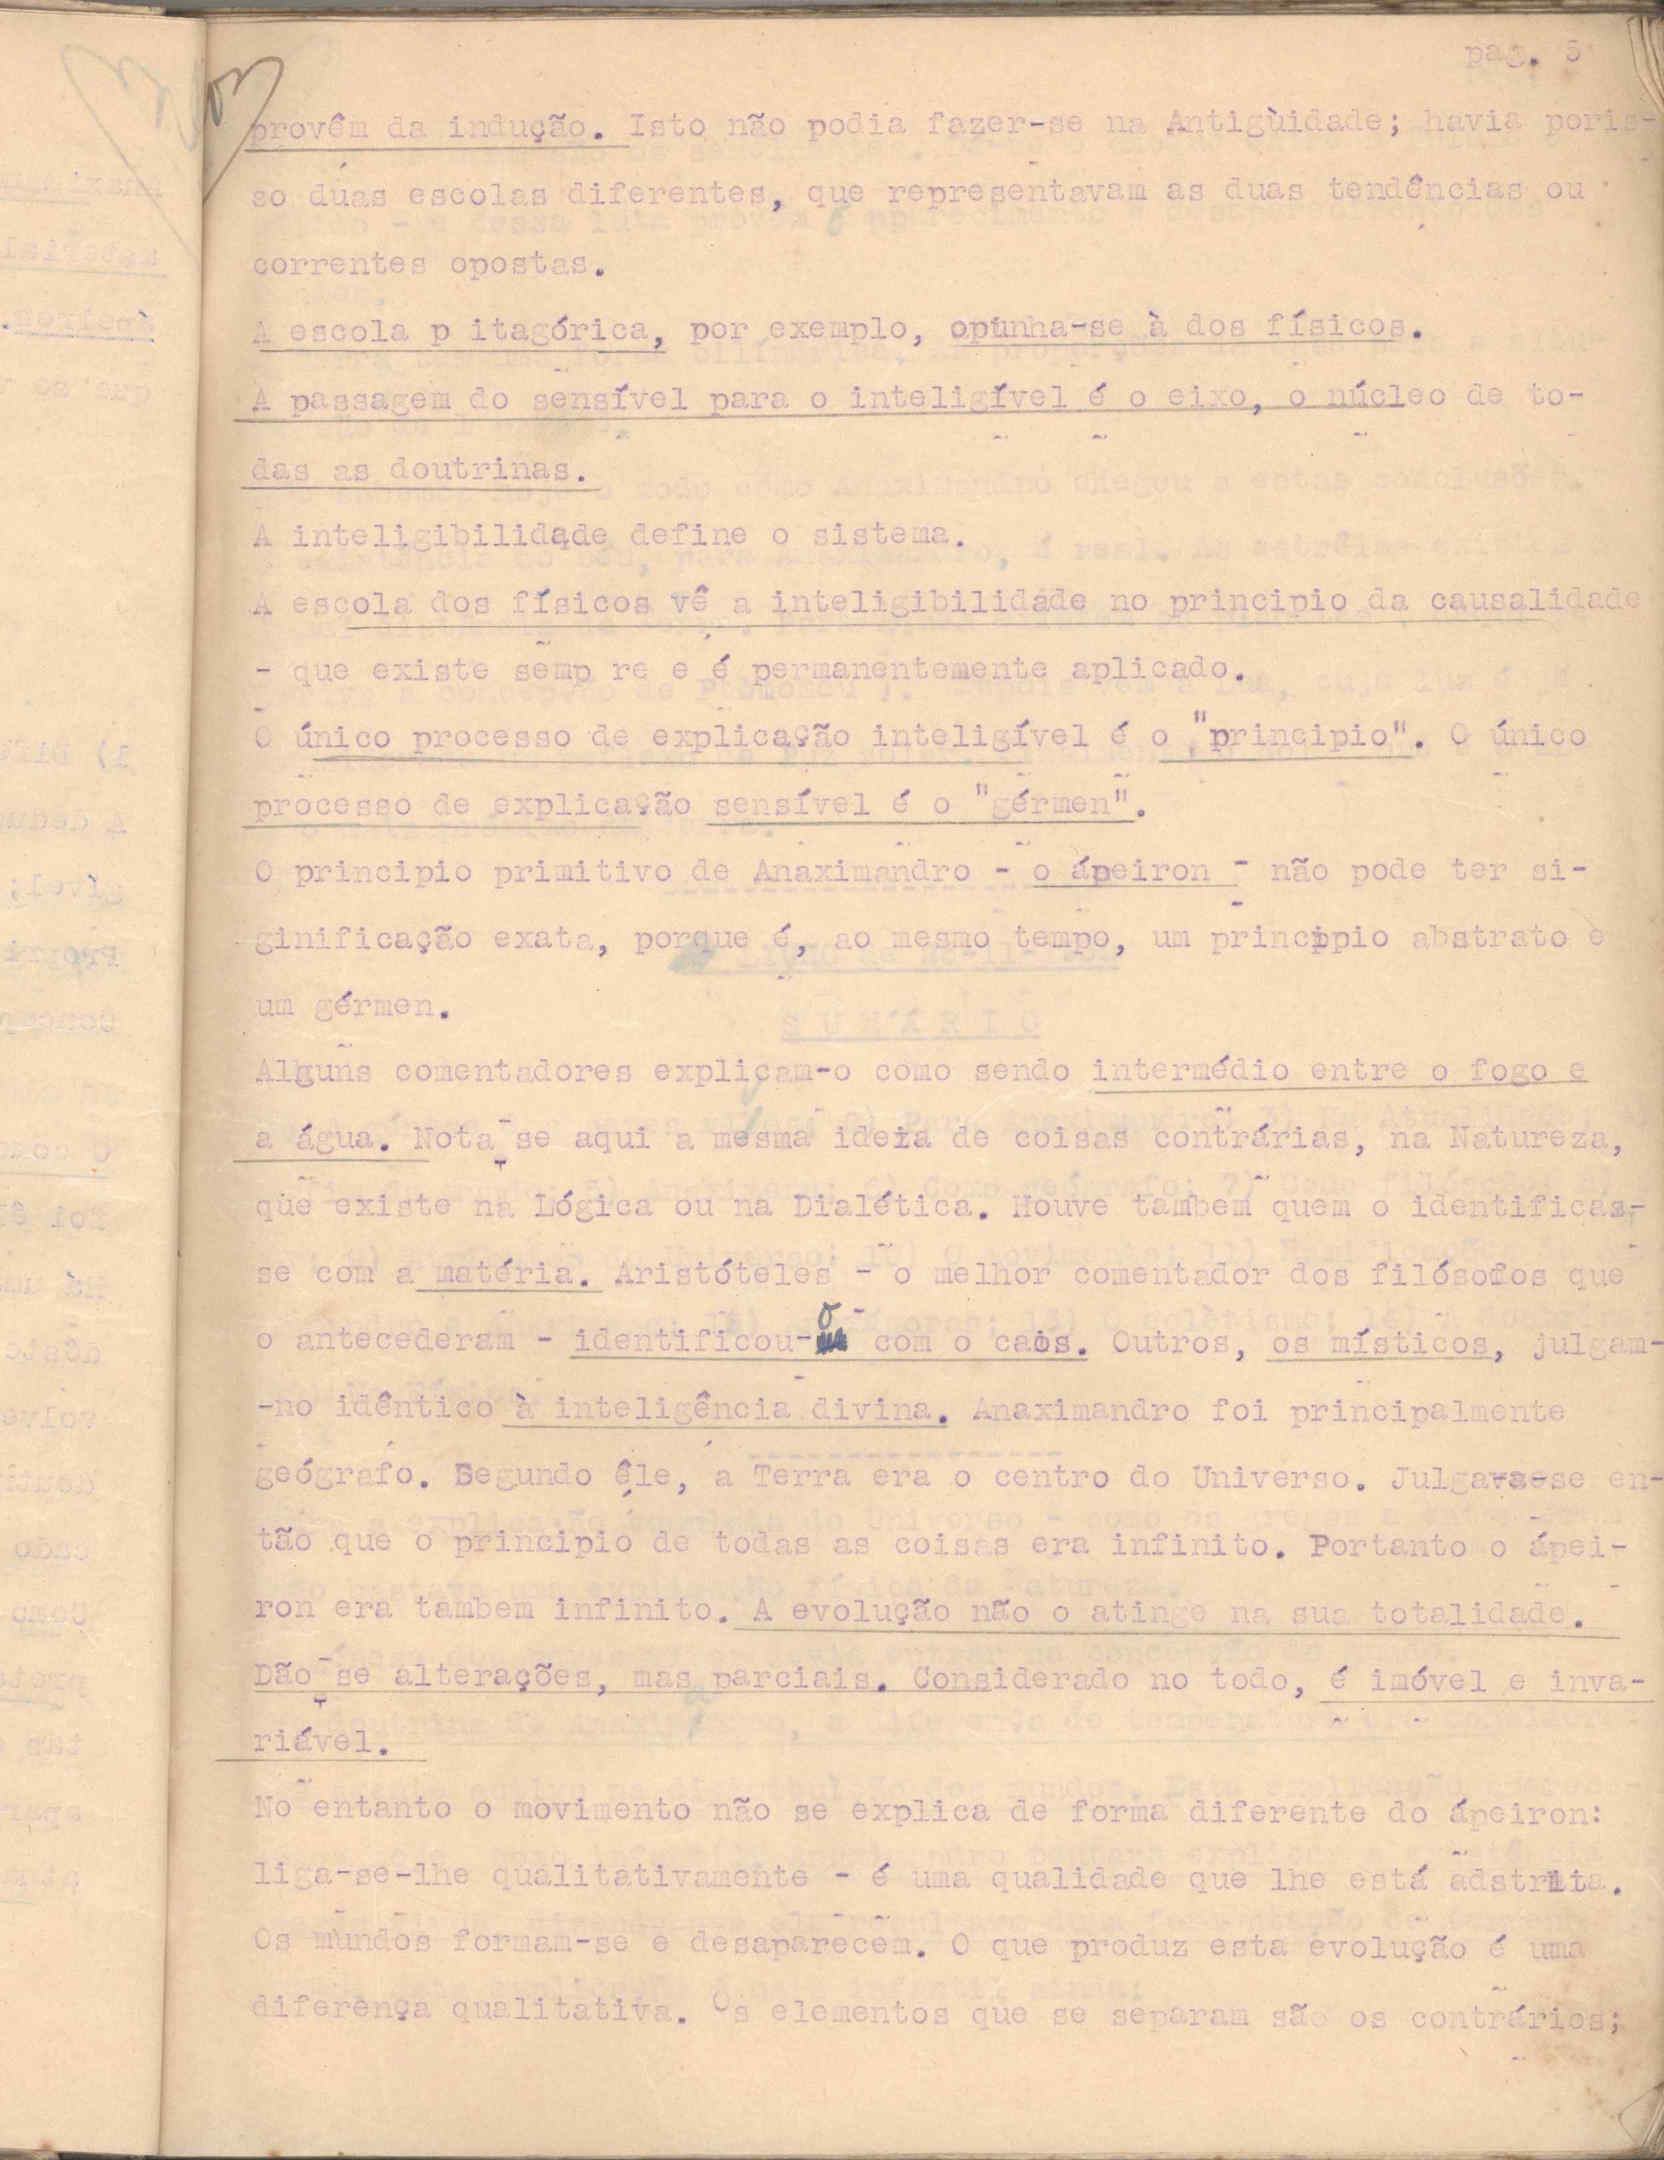 pag. 5
provêm da indução. Isto não podia fazer-se na Antigùidade; havia poris-
so duas escolas diferentes, que representavam as duas tendências ou
correntes opostas.
A escola p itagórica, por exemplo, opunha-se à dos físicos.
A passagem do sensível para o inteligível é o eixo, o núcleo de to-
das as doutrinas.
A inteligibilidade define o sistema.
A escola dos físicos vê a inteligibilidade no principio da causalidade
- que existe semp re e é permanentemente aplicado.
O único processo de explicação inteligível é o "principio". O único
processo de explicação sensível é o "gérmen".
O principio primitivo de Anaximandro - o ápeiron - não pode ter si-
ginificação exata, porque é, ao mesmo tempo, um princippio abstrato e
um gérmen.
Alguns comentadores explicam-o como sendo intermédio entre o fogo e
a água. Nota-se aqui a mesma ideia de coisas contrárias, na Natureza,
que existe na Lógica ou na Dialética. Houve tambem quem o identificas-
se com a matéria. Aristóteles - o melhor comentador dos filósofos que
o antecederam - identificou-o com o caos. Outros, os místicos, julgam-
-no idêntico à inteligência divina. Anaximandro foi principalmente
geógrafo. Segundo êle, a Terra era o centro do Universo. Julgava-se en-
tão que o principio de todas as coisas era infinito. Portanto o ápei-
ron era tambem infinito. A evolução não o atinge na sua totalidade.
Dão-se alterações, mas parciais. Considerado no todo, é imóvel e inva-
riável.
No entanto o movimento não se explica de forma diferente do ápeiron:
liga-se-lhe qualitativamente - é uma qualidade que lhe está adstrita.
Os mundos formam-se e desaparecem. O que produz esta evolução é uma
diferença qualitativa. Os elementos que se separam são os contrários;